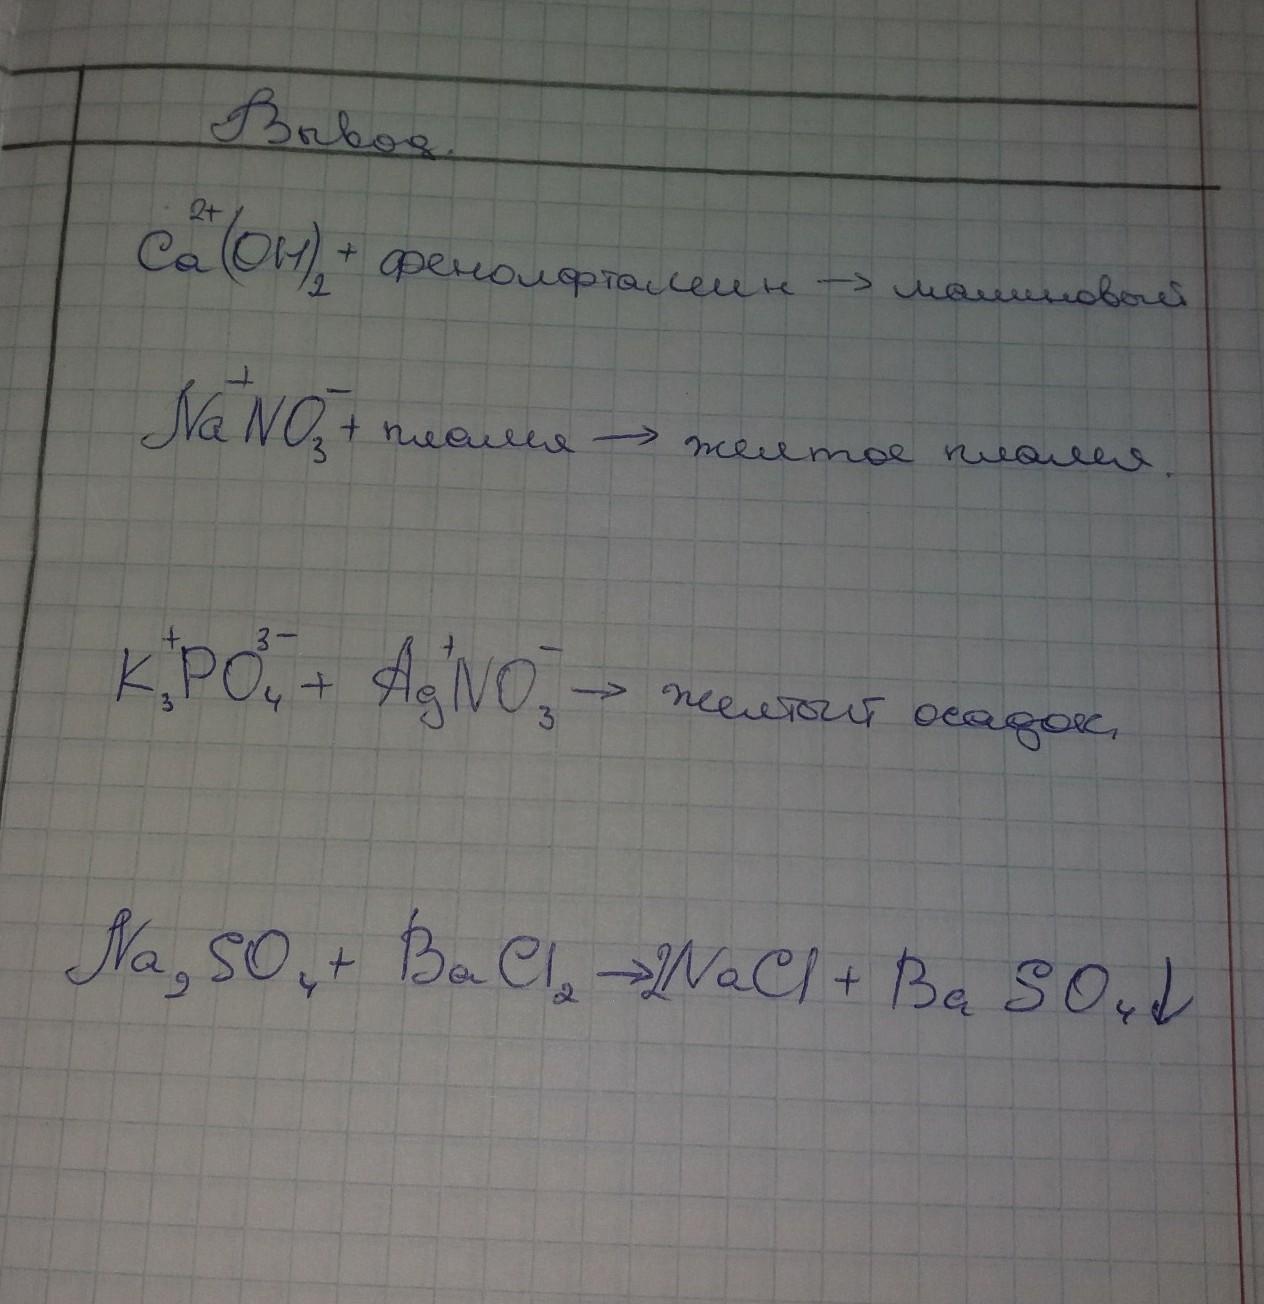 Вывод.
Ca²⁺(OH)₂ + фенолфталеин → малиновый
Na⁺NO₃⁻ + пламя → желтое пламя.
K₃⁺PO₄³⁻ + Ag⁺NO₃⁻ → желтый осадок.
Na₂SO₄ + BaCl₂ → 2NaCl + BaSO₄↓